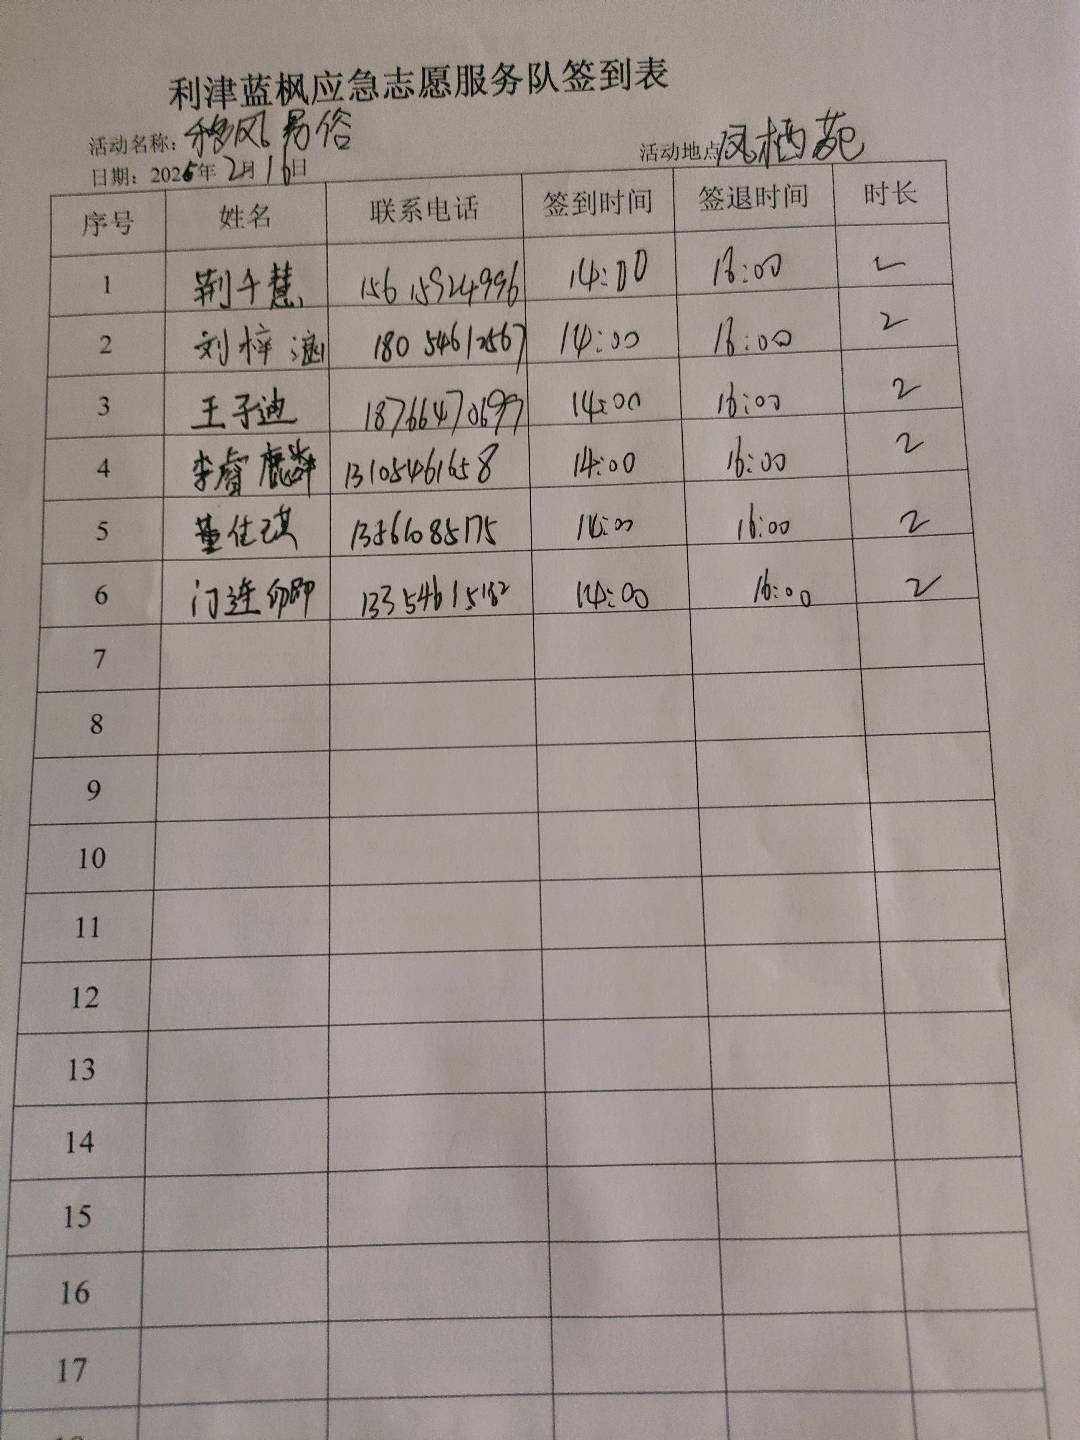 利津蓝枫应急志愿服务队签到表
活动名称：移风易俗 活动地点 凤栖苑
日期：2026年2月16日
序号 姓名 联系电话 签到时间 签退时间 时长
1 荆千慧 15615924996 14:00 16:00 2
2 刘梓涵 18054612567 14:00 16:00 2
3 王子迪 18766470699 14:00 16:00 2
4 李睿麟 13105461658 14:00 16:00 2
5 董佳琪 13561085175 14:00 16:00 2
6 门连 13354615182 14:00 16:00 2
7
8
9
10
11
12
13
14
15
16
17